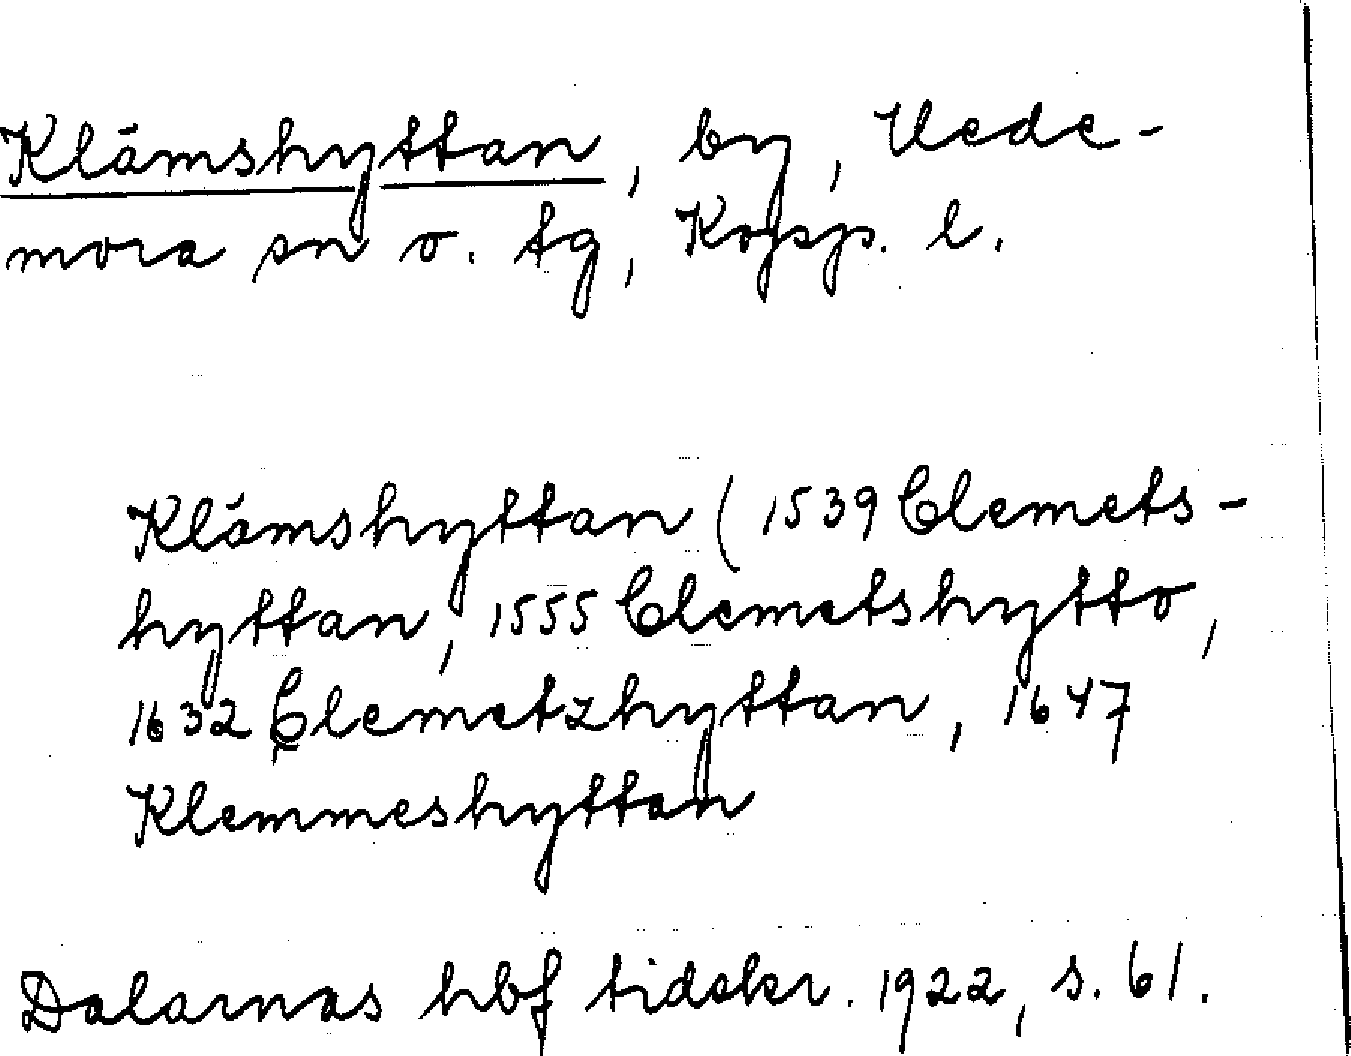 Klämshyttan, by, Hede-
mora sn o. tg, Kopp. l.
Klämshyttan (1539 Clemets-
hyttan, 1555 Clemetshytto,
1632 Clemetzhyttan, 1647
Klemmeshyttan
Dalarnas hbf tidskr. 1922, s. 61.